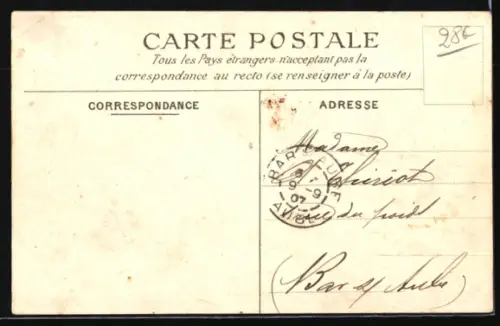 CARTE POSTALE
Tous les Pays étrangers n'acceptant pas la
correspondance au recto (se renseigner à la poste)
286
CORRESPONDANCE
ADRESSE
Madame
BAR-S-AUBE
9 -9
07
AUBE
rue du poids
(Bar s/ Aube)